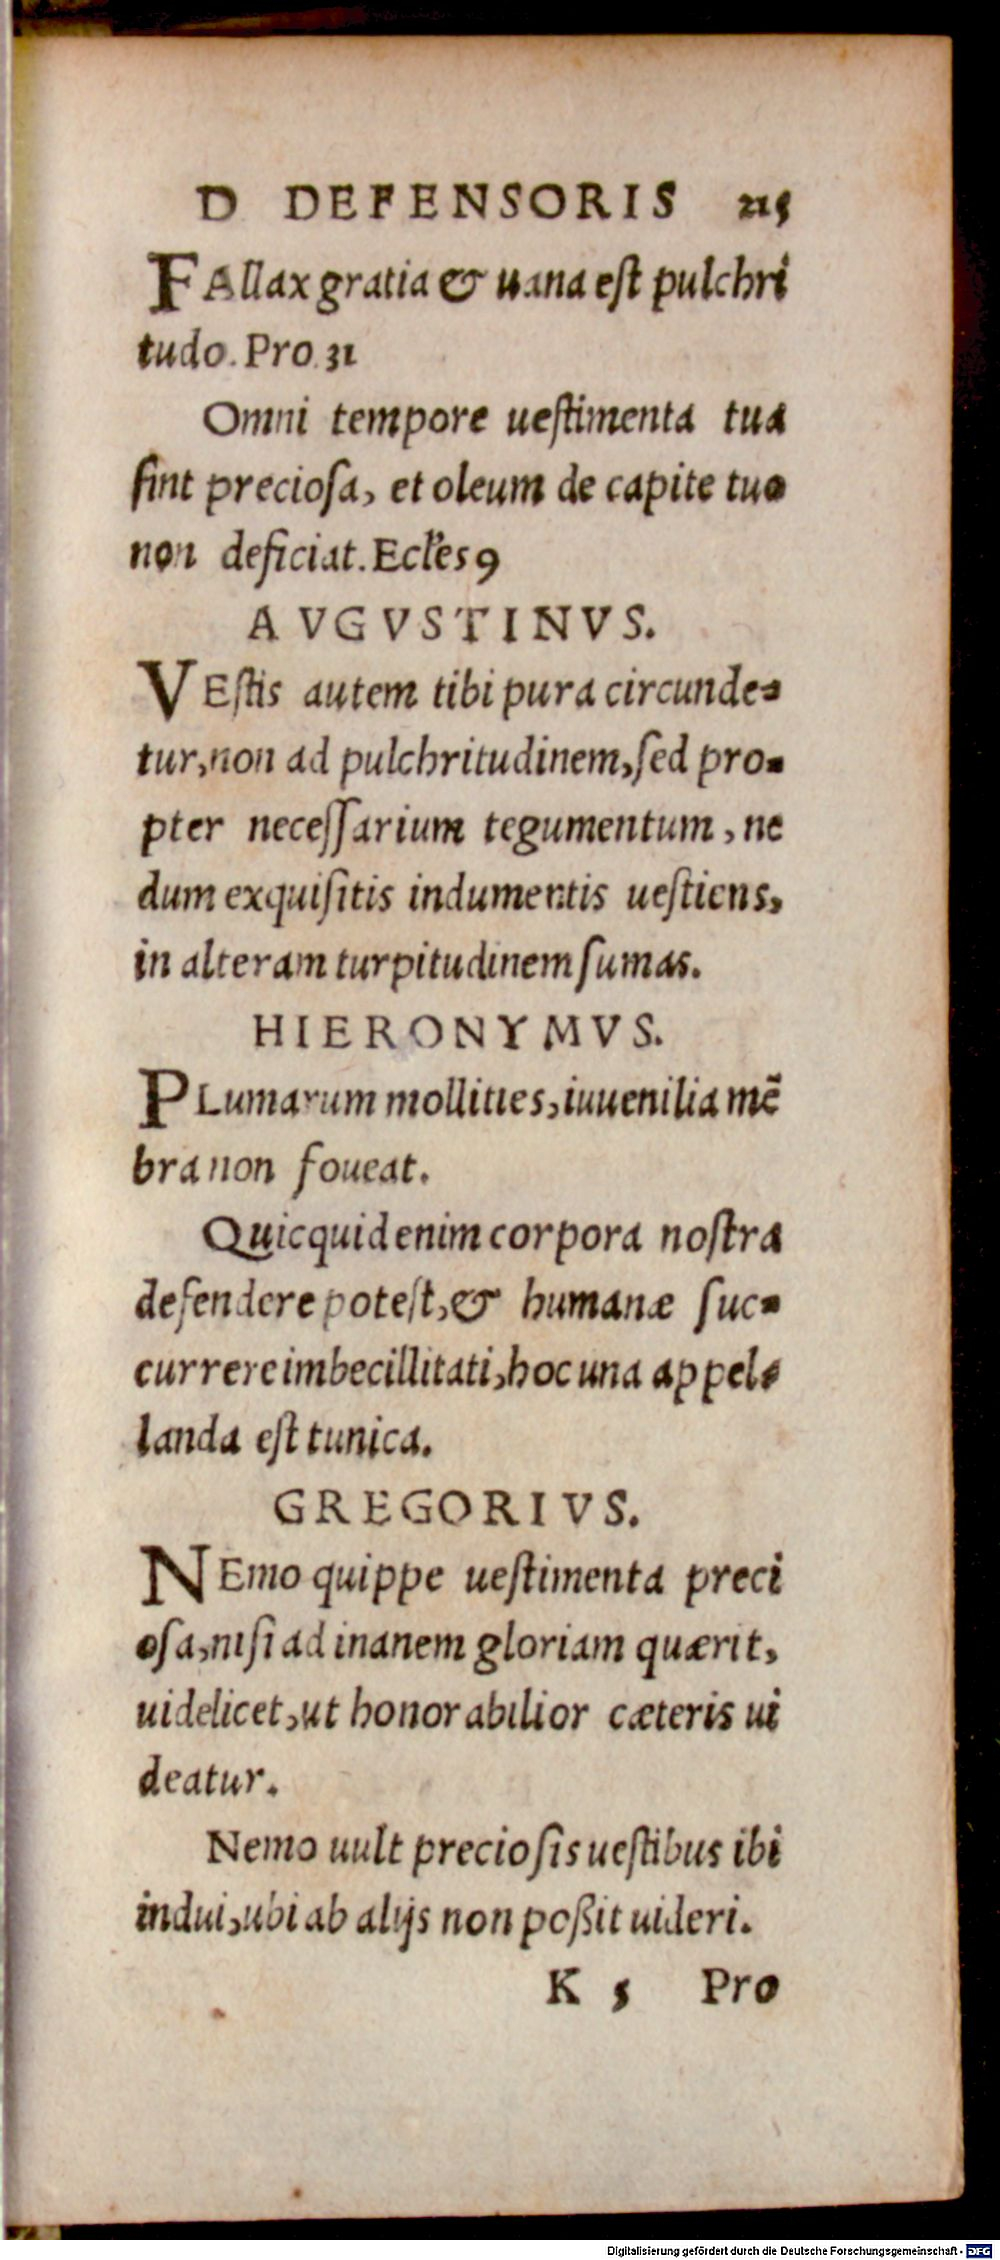 D DEFENSORIS 215
FAllax gratia & uana est pulchri
tudo. Pro. 31
Omni tempore uestimenta tua
sint preciosa, et oleum de capite tuo
non deficiat. Eccles 9
AVGVSTINVS.
VEstis autem tibi pura circunde-
tur, non ad pulchritudinem, sed pro-
pter necessarium tegumentum, ne
dum exquisitis indumentis uestiens,
in alteram turpitudinem sumas.
HIERONYMVS.
PLumarum mollities, iuuenilia mē
bra non foueat.
Quicquid enim corpora nostra
defendere potest, & humanæ suc-
currere imbecillitati, hoc una appel-
landa est tunica.
GREGORIVS.
NEmo quippe uestimenta preci
osa, nisi ad inanem gloriam quærit,
uidelicet, ut honorabilior cæteris ui
deatur.
Nemo uult preciosis uestibus ibi
indui, ubi ab alijs non poßit uideri.
K 5 Pro
Digitalisierung gefördert durch die Deutsche Forschungsgemeinschaft - DFG